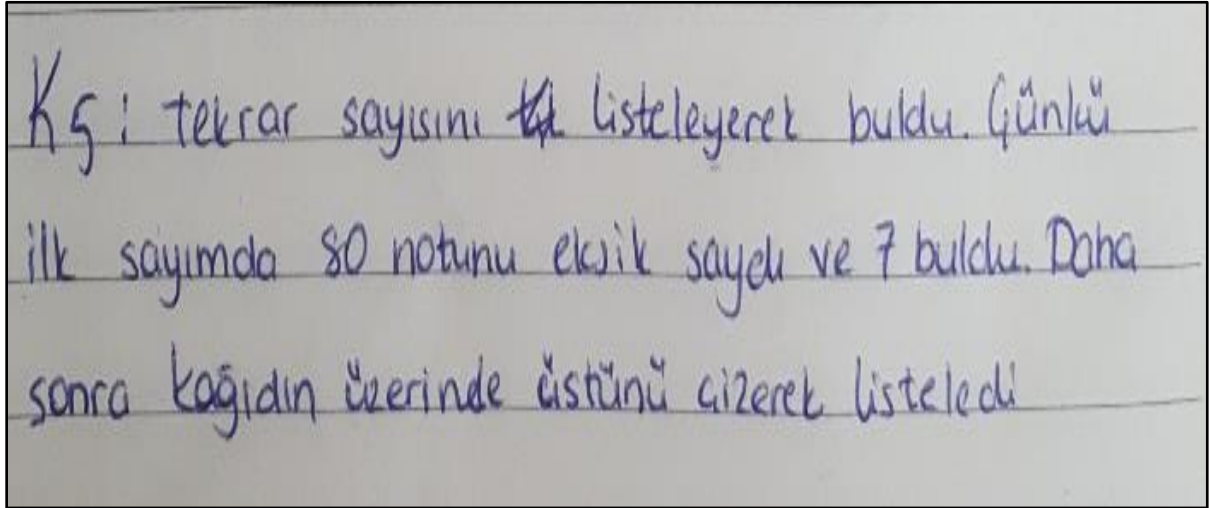 K5: tekrar sayısını listeleyerek buldu. Günkü
ilk sayımda 80 notunu eksik saydı ve 7 buldu. Daha
sonra kağıdın üzerinde üstünü çizerek listeledi